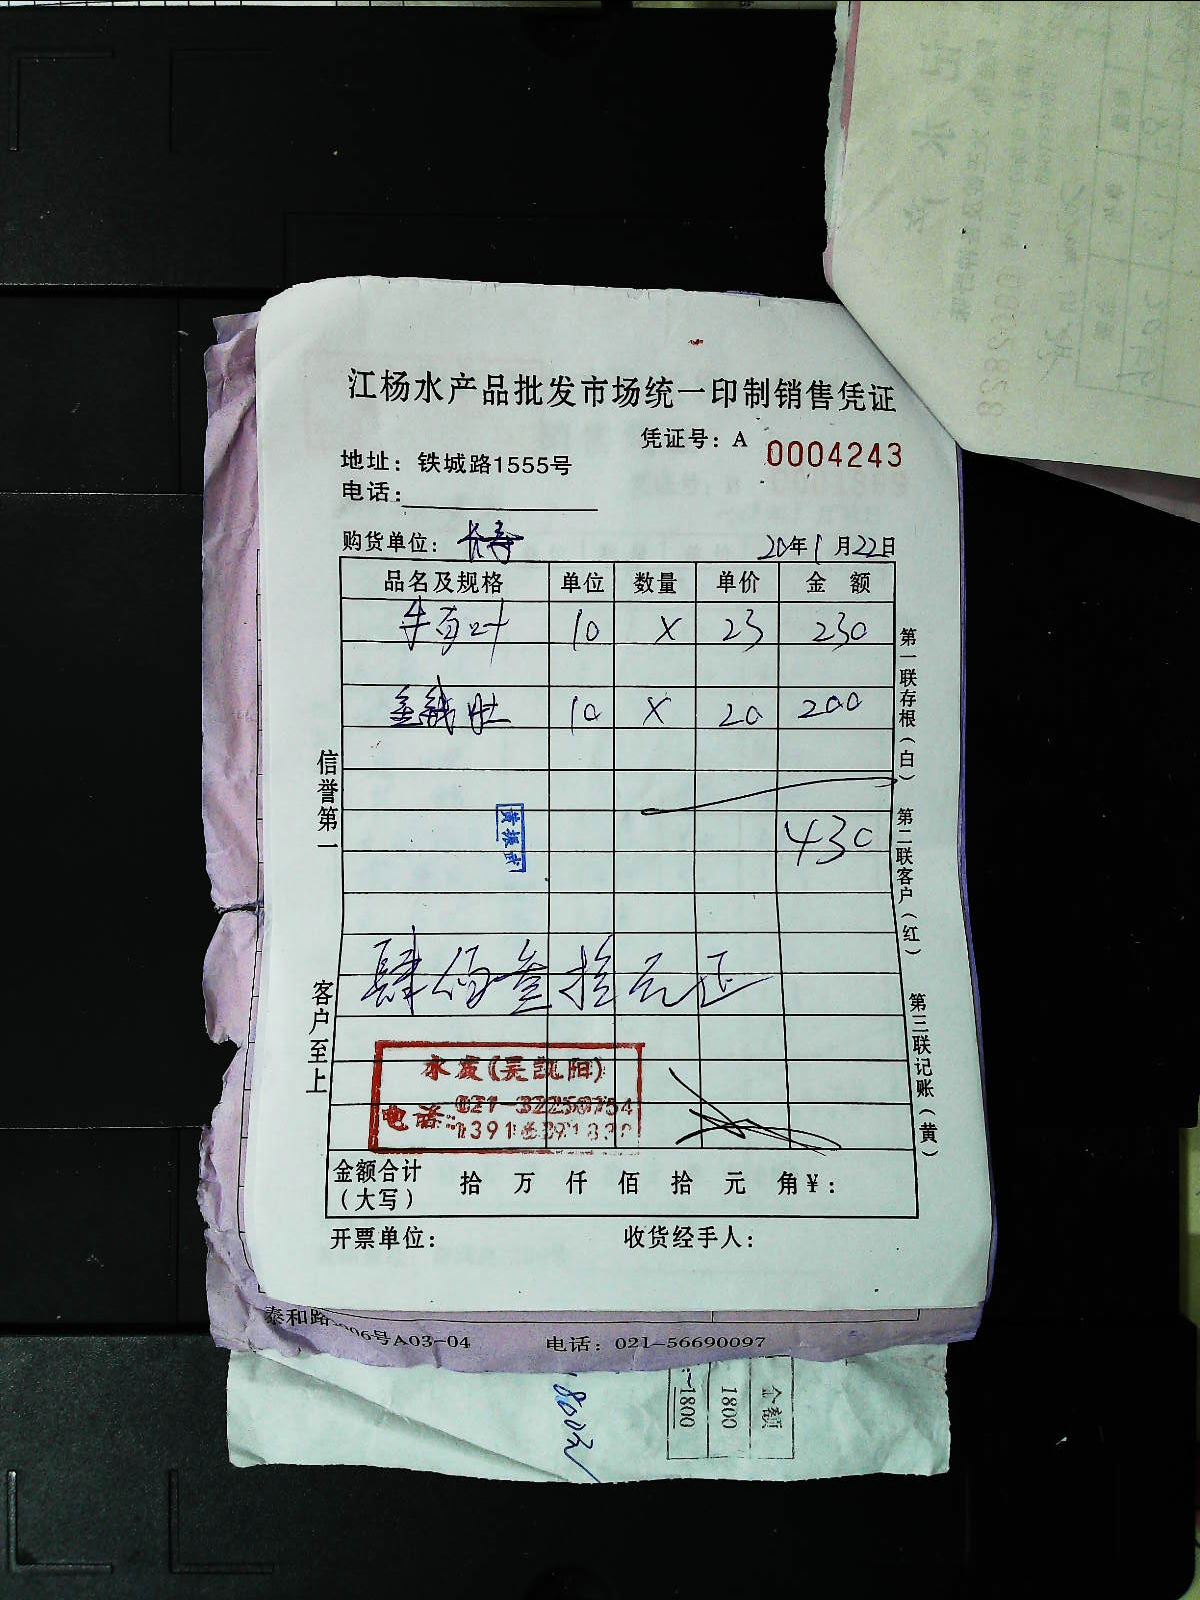 江杨水产品批发市场统一印制销售凭证
凭证号：A 0004243
地址：铁城路1555号
电话：
购货单位：长寿 20年1月22日
品名及规格 单位 数量 单价 金 额
牛百叶 10 X 23 230
金钱肚 10 X 20 200
430
黄振武
肆佰叁拾元正
水发(吴凯阳)
电话：021-32250754
金额合计（大写） 拾 万 仟 佰 拾 元 角¥：
开票单位： 收货经手人：
信誉第一
客户至上
第一联存根（白）
第二联客户（红）
第三联记账（黄）
泰和路 06号A03-04 电话：021-56690097
金额
1800
1800